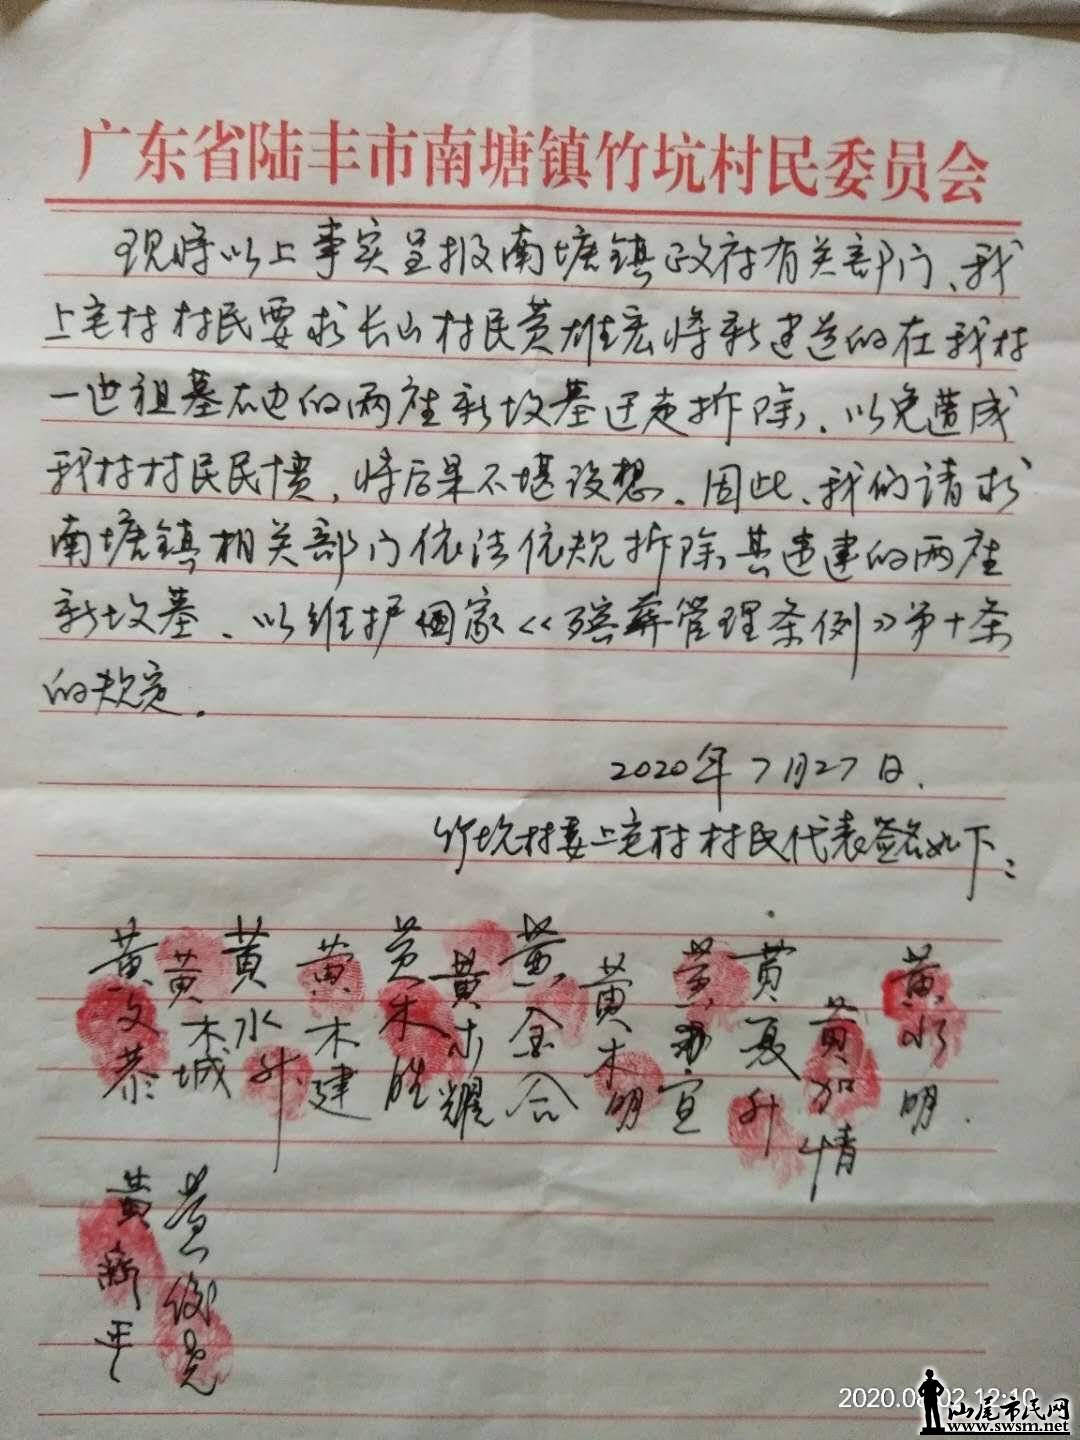 广东省陆丰市南塘镇竹坑村民委员会
现将以上事实呈报南塘镇政府有关部门、我
上宅村村民要求长山村民黄雄宏将新建造的在我村
一世祖墓右边的两座新坟墓迁走拆除、以免造成
我村村民民愤,将后果不堪设想。因此、我们请求
南塘镇相关部门依法依规拆除其违建的两座
新坟墓、以维护国家《殡葬管理条例》第十条
的规定。
2020年7月27日.
竹坑村委上宅村村民代表签名如下:
黄文恭
黄木城
黄水升
黄木建
黄木胜
黄木耀
黄金合
黄木明
黄 宣
黄夏升
黄加情
黄水明.
黄 平
黄俊亮
2020.08.02 12:10
汕尾市民网
www.swsm.net